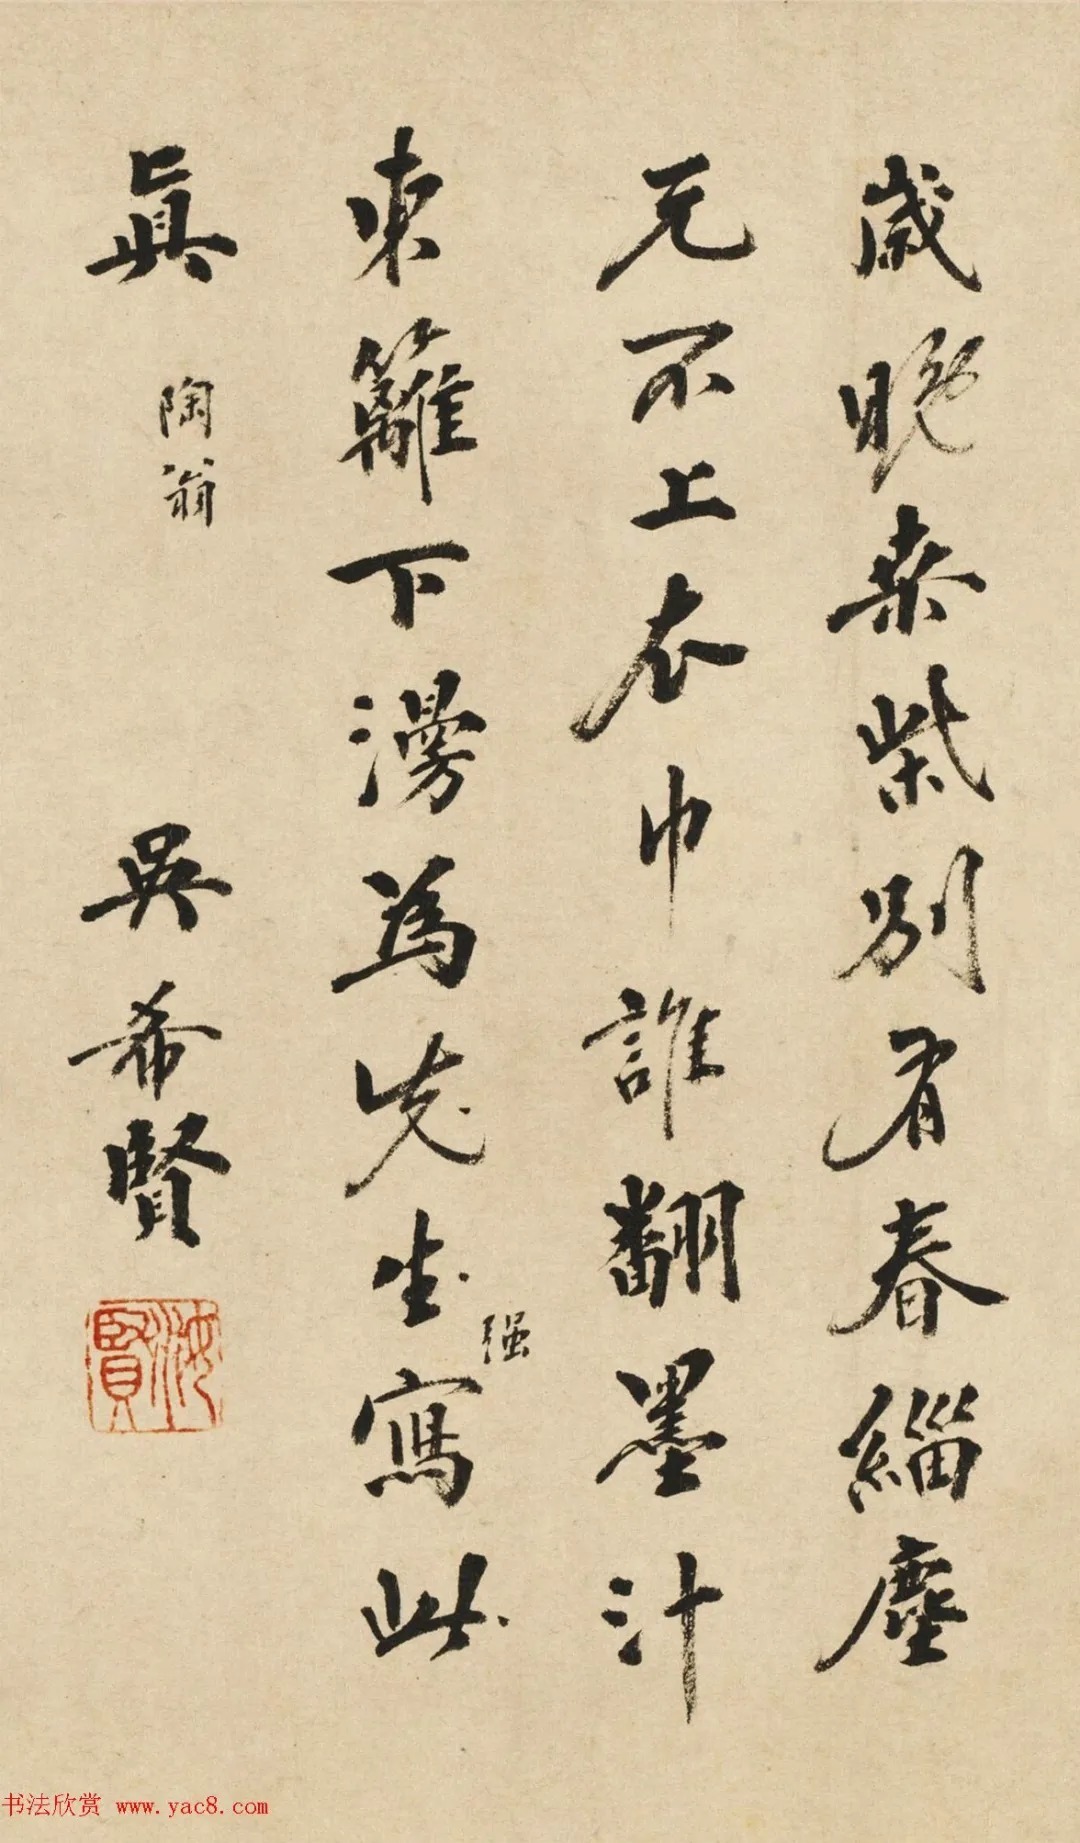 歲晚桒柴別有春緇塵
元不上衣巾誰翻墨汁
東籬下漫為先生寫此
强
眞 陶翁 吳希賢
汝賢
书法欣赏 www.yac8.com